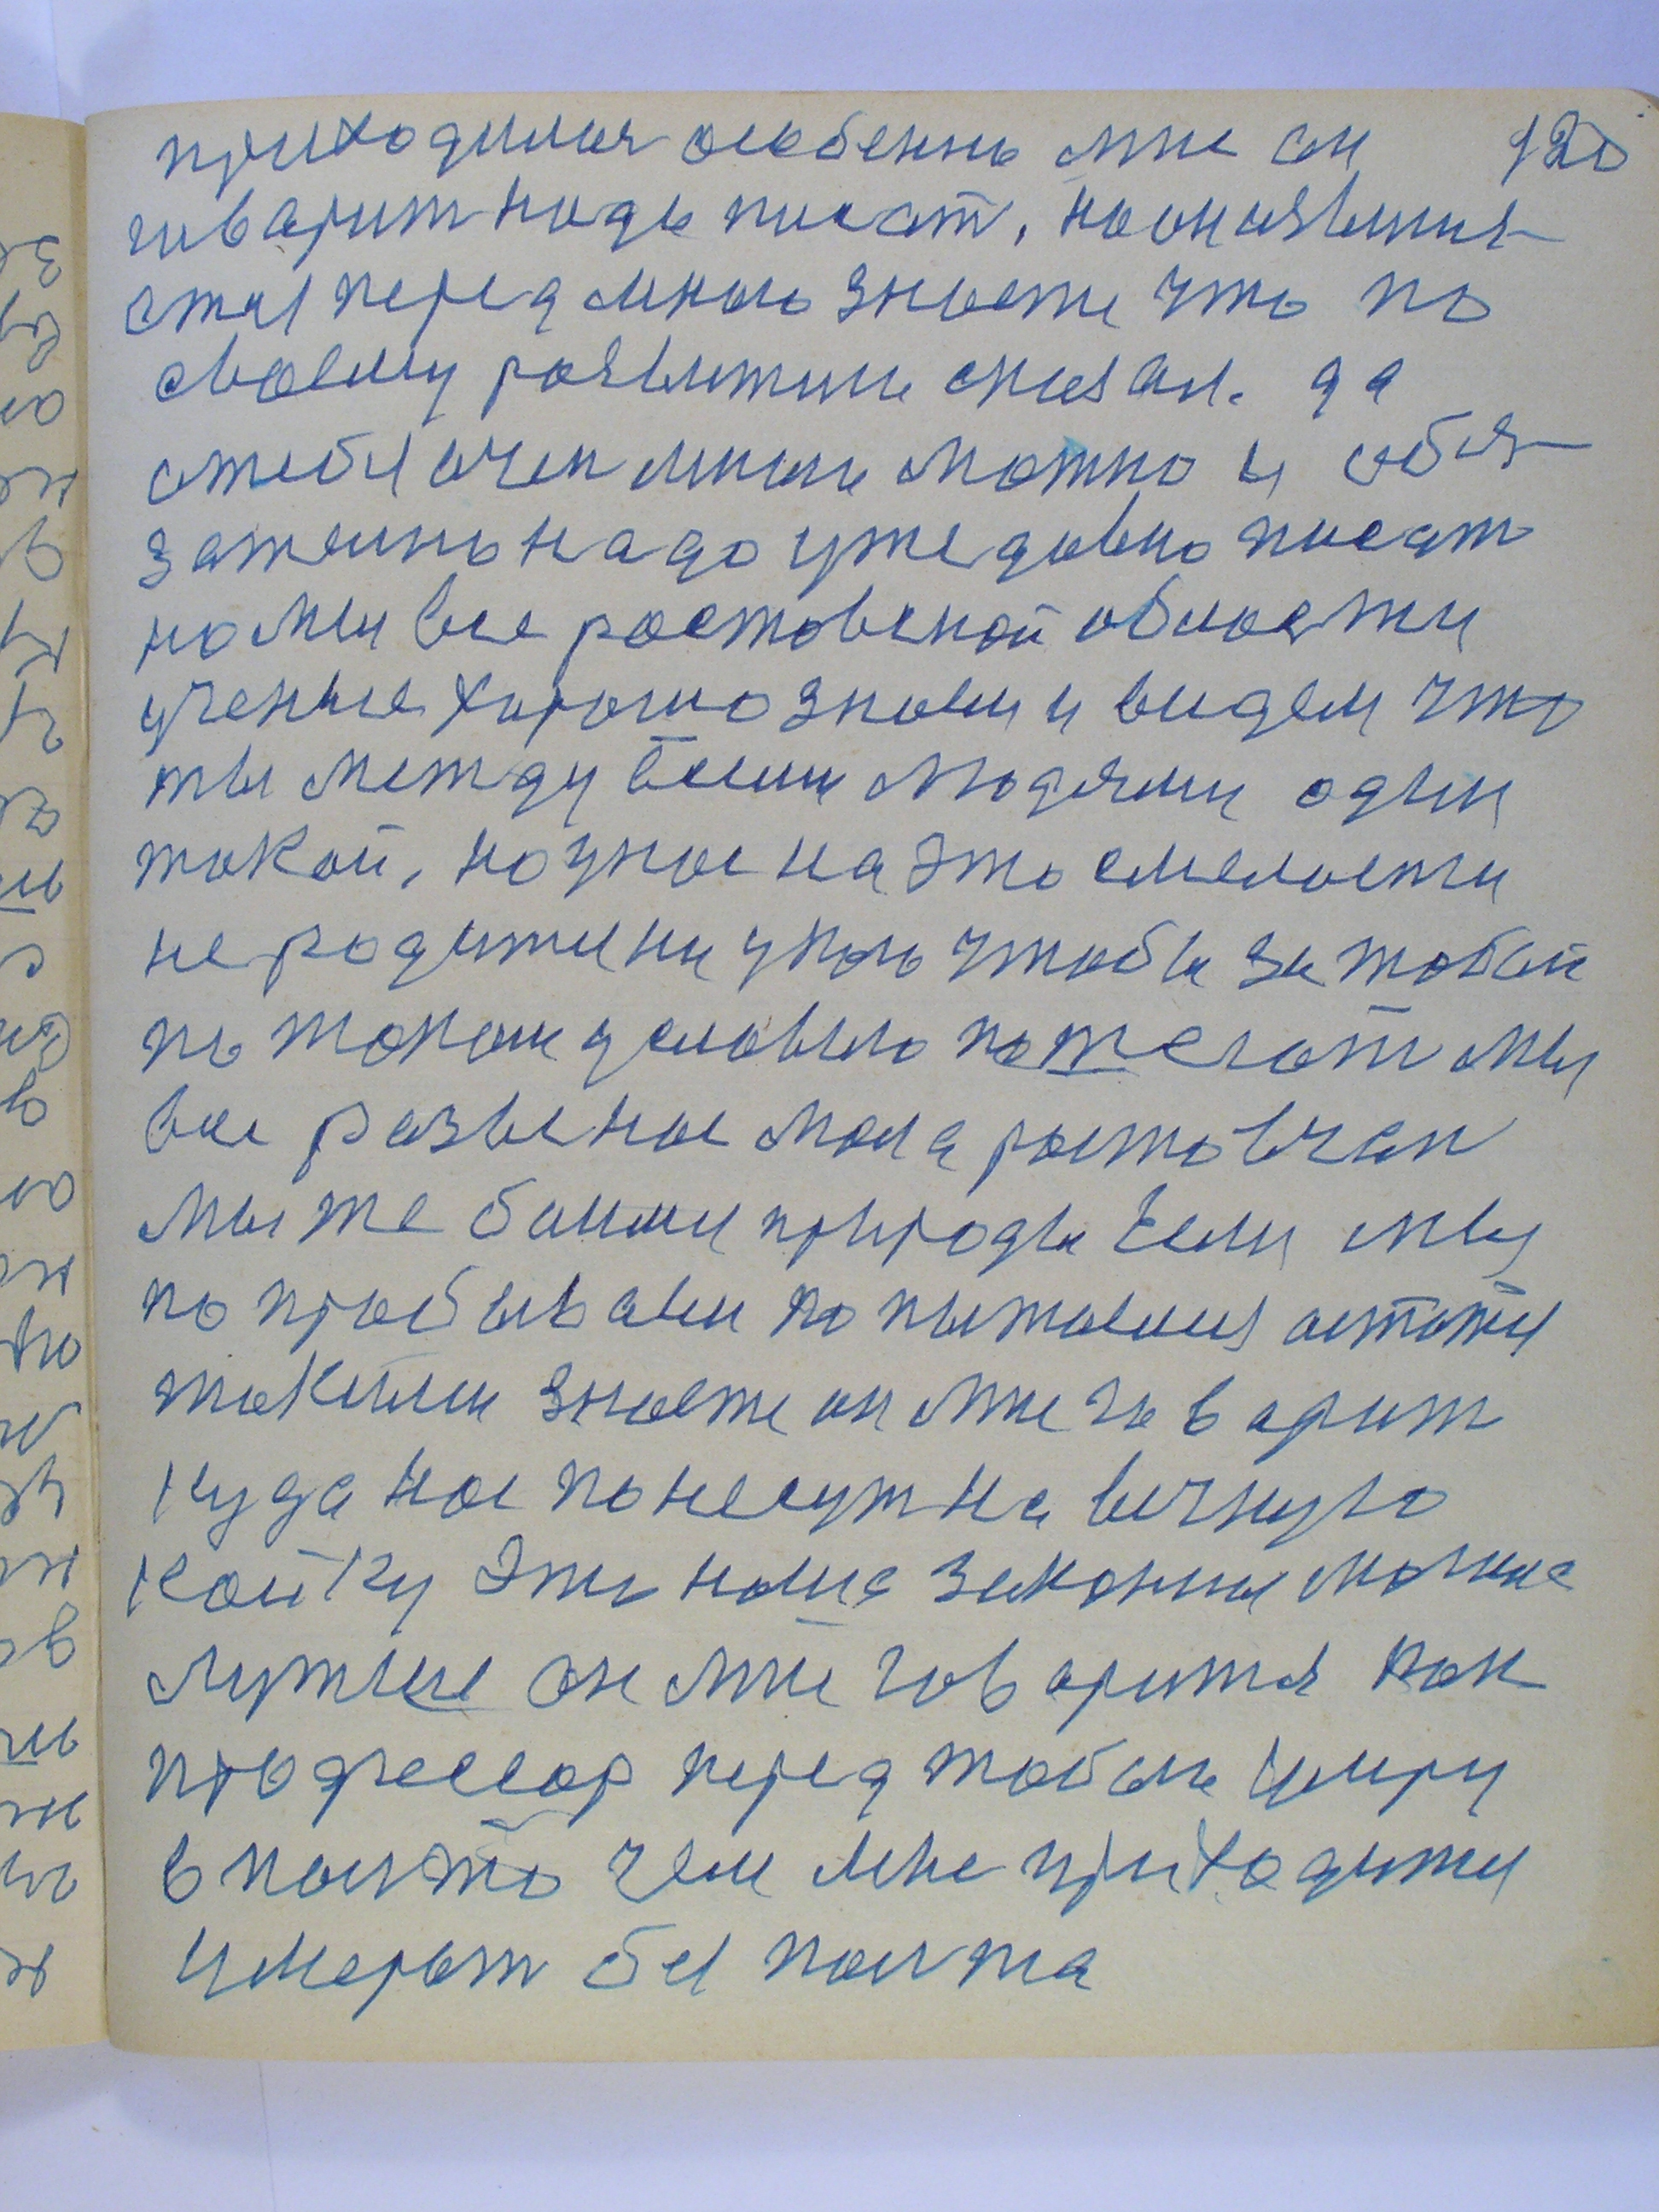 приходился особенно мне он 120
говарит надо писат, но он извиня
стал передмною знаете что по
своему развитию сказал. да
отебя очен многи можно и обя
зателно надо уже давно писат
но мы все ростовской области
ученые хорошо знаем и видем что
ты между всеми людями один
такой, но унас на это смелости
не родителни уково чтобы за тобой
по токому условию пожелат мы
все развеныс мала ростовчан
мы же боимси природы Если мы
по пробываем попытаемся остати
такими знаете он мне говарит
куда нас понесут на вечную
койку Это наша законные могила
лутшые он мне говарится как
профессор перед тобою умру
впалто чем мне приходится
умерат без палта